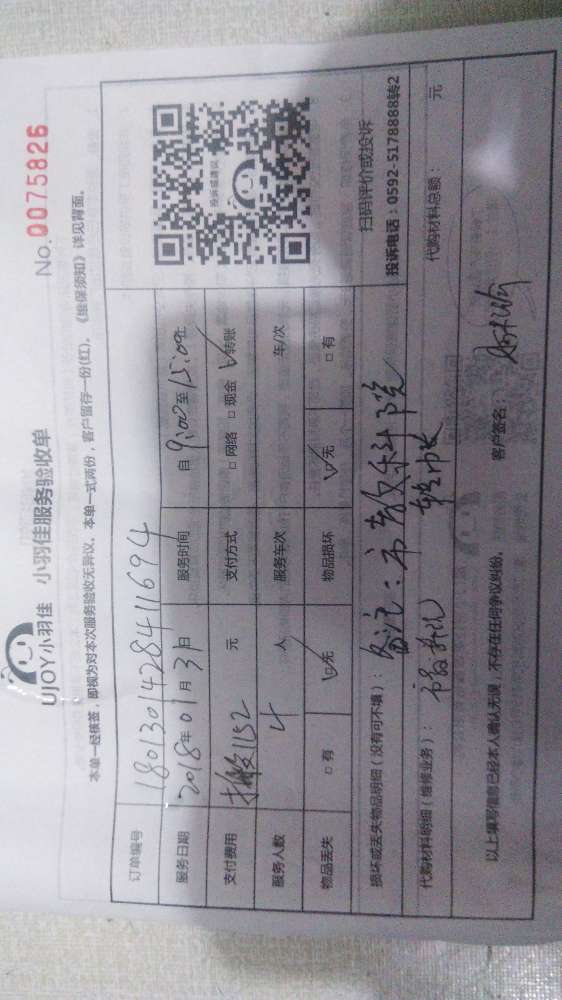 UJOY小羽佳 小羽佳服务验收单
No.0075826
本单一经核签，即视为对本次服务验收无异议。本单一式两份，客户留存一份(红)。《维保须知》详见背面。
订单编号 180130142841169４
服务日期 2018年01月31日 服务时间 自9:00至15:00止
支付费用 搬1152 元 支付方式 □网络 □现金 ☑转账
服务人数 4 人 服务车次 车/次
物品丢失 □有 ☑无 物品损坏 ☑无 □有
投诉或建议
扫码评价或投诉
投诉电话：0592-5178888转2
损坏或丢失物品明细（没有可不填）： 备注：市教科院
代购材料明细（维修业务）： 转帐
代购材料总额： 元
以上填写信息已经本人确认无误，不存在任何争议纠纷。 客户签名：